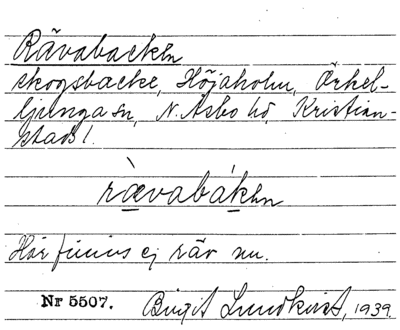 Rävabacken
skogsbacke, Höjaholm, Örkel-
ljunga sn, N. Åsbo hd, Kristian-
stad l.
rævabákən
Här finns ej räv nu.
Nr 5507. Birgit Lundkvist, 1939.